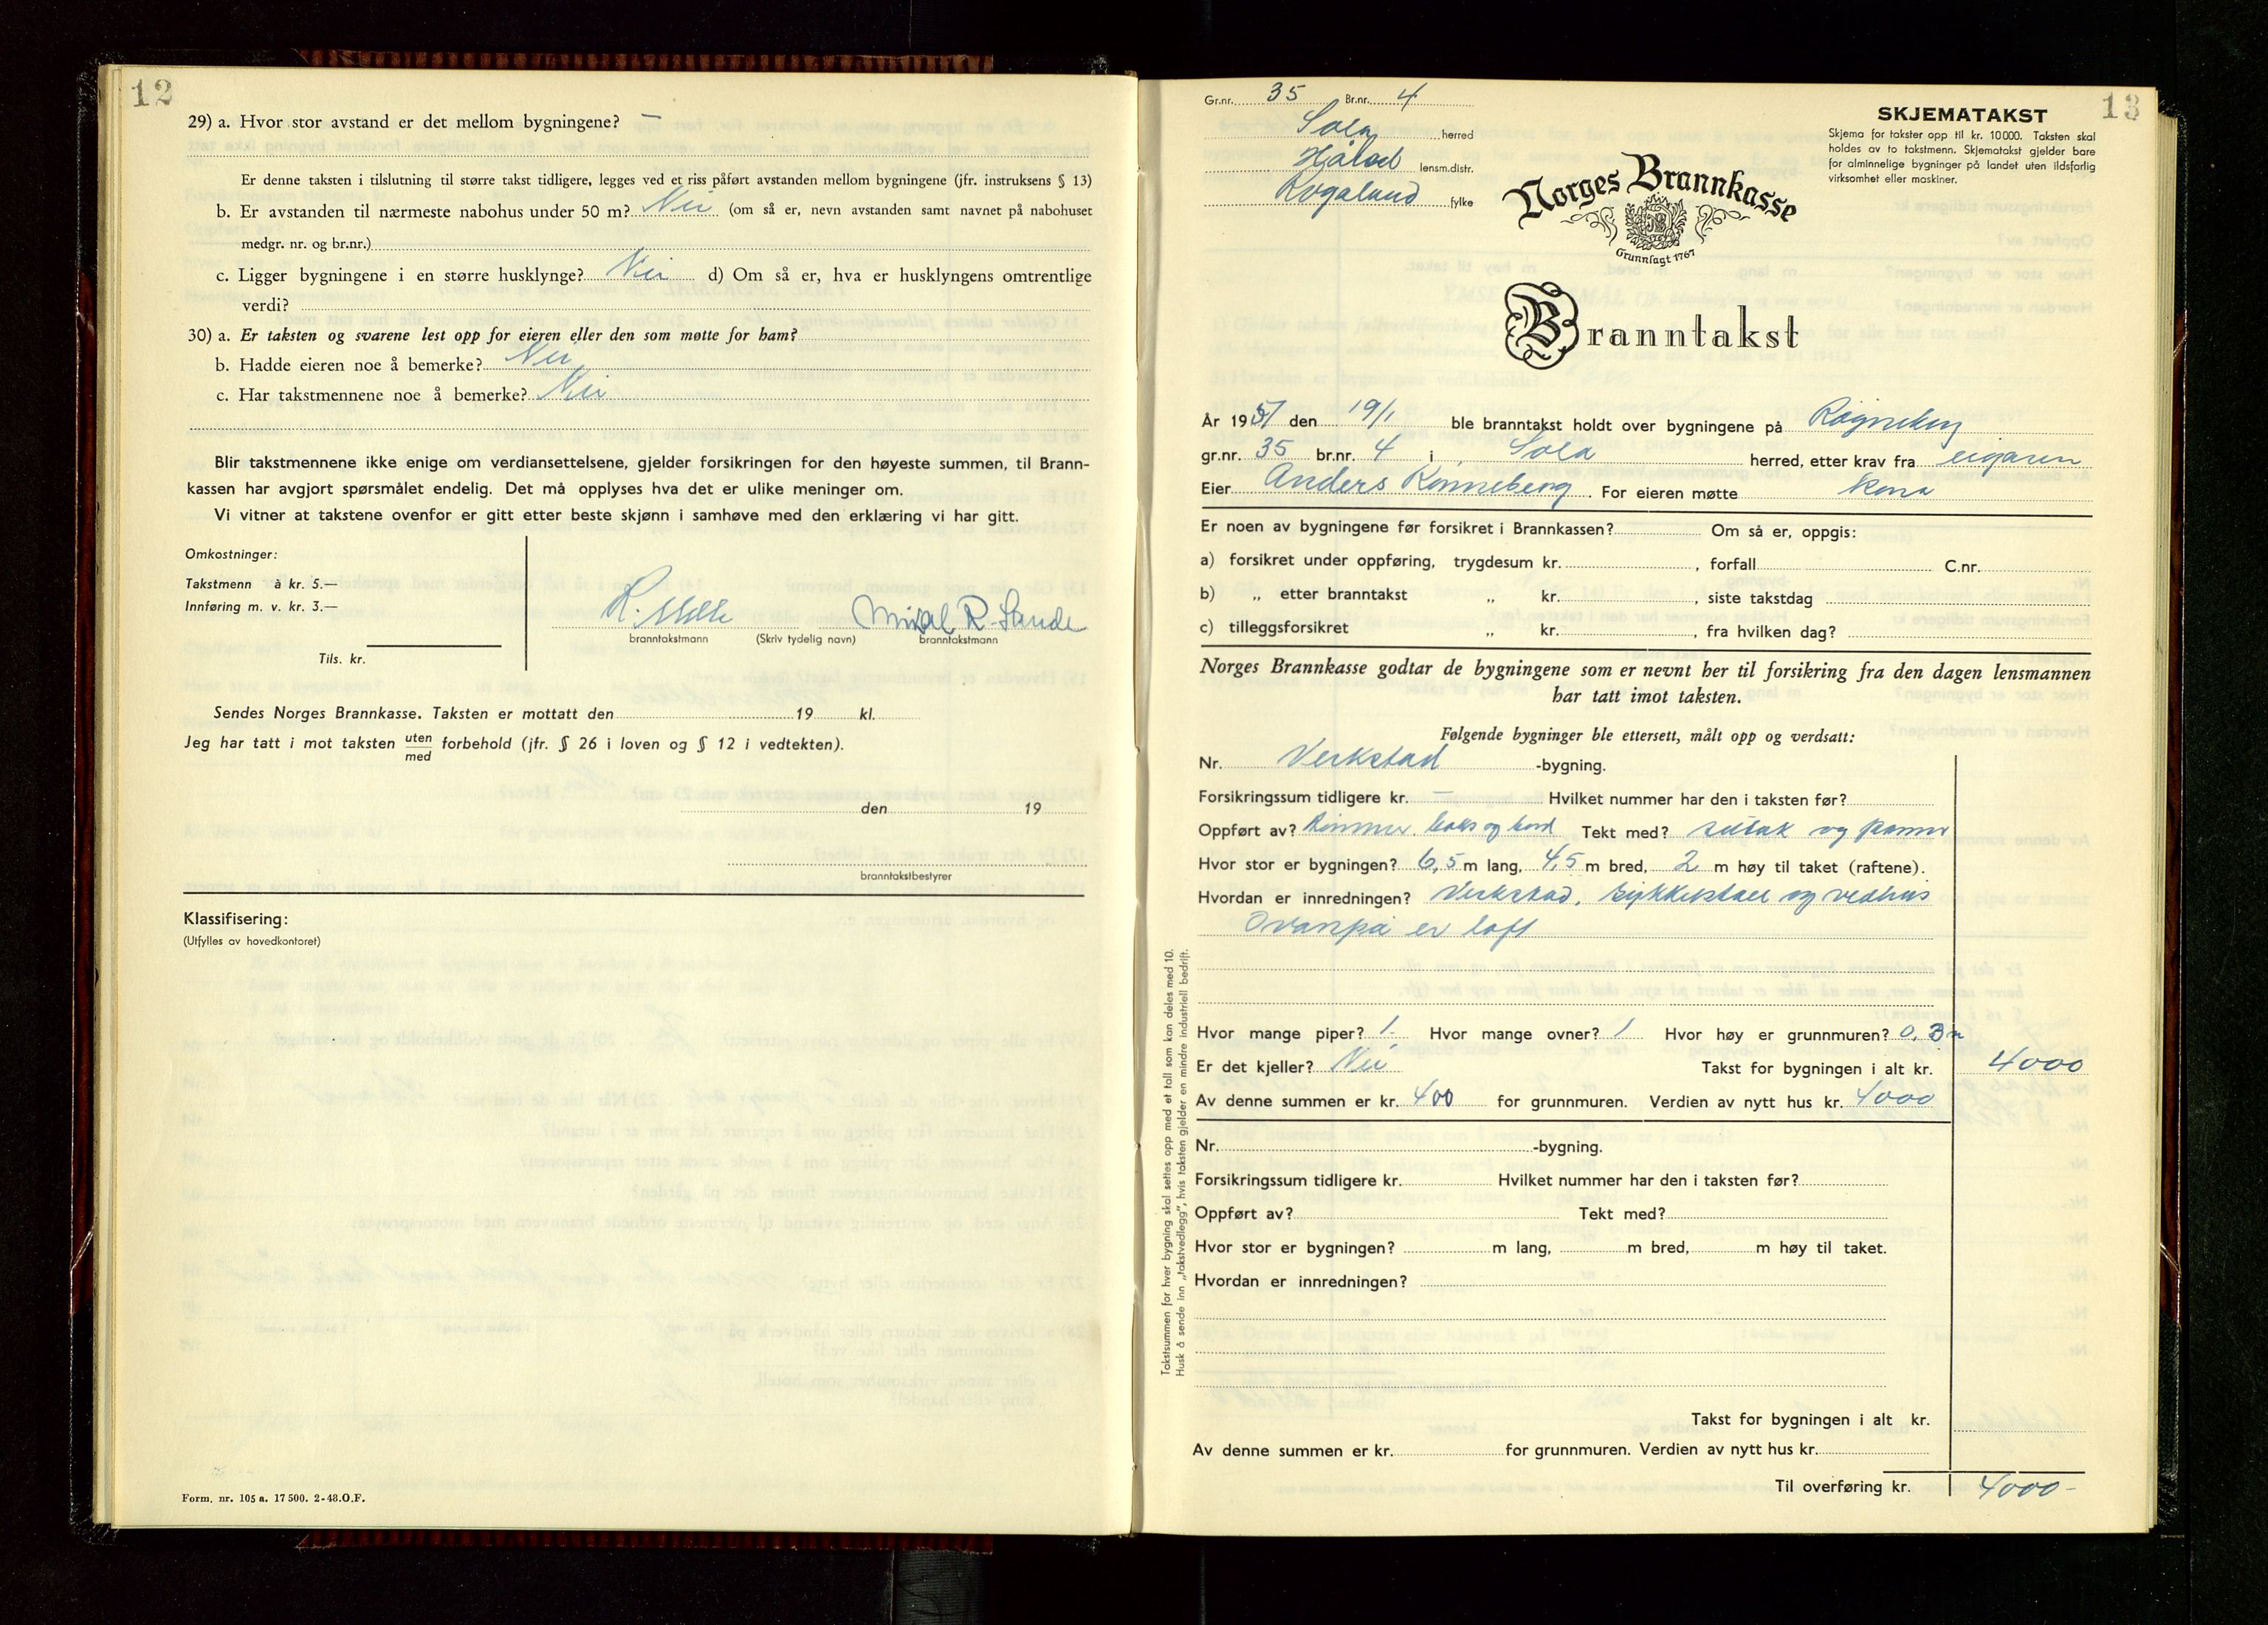 12
29) a. Hvor stor avstand er det mellom bygningene? —
Er denne taksten i tilslutning til større takst tidligere, legges ved et riss påført avstanden mellom bygningene (jfr. instruksens § 13)
b. Er avstanden til nærmeste nabohus under 50 m? Nei (om så er, nevn avstanden samt navnet på nabohuset
medgr. nr. og br.nr.)
c. Ligger bygningene i en større husklynge? Nei d) Om så er, hva er husklyngens omtrentlige
verdi?
30) a. Er taksten og svarene lest opp for eieren eller den som møtte for ham?
b. Hadde eieren noe å bemerke? Nei
c. Har takstmennene noe å bemerke? Nei
Blir takstmennene ikke enige om verdiansettelsene, gjelder forsikringen for den høyeste summen, til Brann-
kassen har avgjort spørsmålet endelig. Det må opplyses hva det er ulike meninger om.
Vi vitner at takstene ovenfor er gitt etter beste skjønn i samhøve med den erklæring vi har gitt.
Omkostninger:
Takstmenn à kr. 5.—
Innføring m. v. kr. 3.—
Tils. kr.
R. Melle R. Sande
branntakstmann (Skriv tydelig navn) branntakstmann
Sendes Norges Brannkasse. Taksten er mottatt den 19 kl.
Jeg har tatt i mot taksten uten forbehold (jfr. § 26 i loven og § 12 i vedtekten).
med
den 19
branntakstbestyrer
Klassifisering:
(Utfylles av hovedkontoret)
Form. nr. 105 a. 17 500. 2-48. O.F.
13
Gr.nr. 35 Br.nr. 4
Sola herred
Håland lensm.distr.
Rogaland fylke
SKJEMATAKST
Skjema for takster opp til kr. 10 000. Taksten skal
holdes av to takstmenn. Skjematakst gjelder bare
for alminnelige bygninger på landet uten ildsfarlig
virksomhet eller maskiner.
Norges Brannkasse
Grunnlagt 1767
Branntakst
År 1951 den 19/1 ble branntakst holdt over bygningene på Røgneberg
gr.nr. 35 br.nr. 4 i Sola herred, etter krav fra eigaren
Eier Anders Rønneberg. For eieren møtte kona
Er noen av bygningene før forsikret i Brannkassen? Om så er, oppgis:
a) forsikret under oppføring, trygdesum kr. , forfall C.nr.
b) „ etter branntakst „ kr. , siste takstdag
c) tilleggsforsikret „ kr. , fra hvilken dag?
Norges Brannkasse godtar de bygningene som er nevnt her til forsikring fra den dagen lensmannen
har tatt imot taksten.
Følgende bygninger ble ettersett, målt opp og verdsatt:
Nr. Verkstad -bygning.
Forsikringssum tidligere kr. — Hvilket nummer har den i taksten før?
Oppført av? og bord Tekt med? sutak og panner
Hvor stor er bygningen? 6,5 m lang, 4,5 m bred, 2 m høy til taket (raftene).
Hvordan er innredningen? Verkstad, sykkelstall og vedhus
Ovanpå er loft
Hvor mange piper? 1 Hvor mange ovner? 1 Hvor høy er grunnmuren? 0,3 m
Er det kjeller? Nei Takst for bygningen i alt kr. 4000
Av denne summen er kr. 400 for grunnmuren. Verdien av nytt hus kr. 4000
Nr. -bygning.
Forsikringssum tidligere kr. Hvilket nummer har den i taksten før?
Oppført av? Tekt med?
Hvor stor er bygningen? m lang, m bred, m høy til taket.
Hvordan er innredningen?
Takst for bygningen i alt kr.
Av denne summen er kr. for grunnmuren. Verdien av nytt hus kr.
Til overføring kr. 4000-
Takstsummen for hver bygning skal settes opp med et tall som kan deles med 10.
Husk å sende inn „takstvedlegg", hvis taksten gjelder en mindre industriell bedrift.